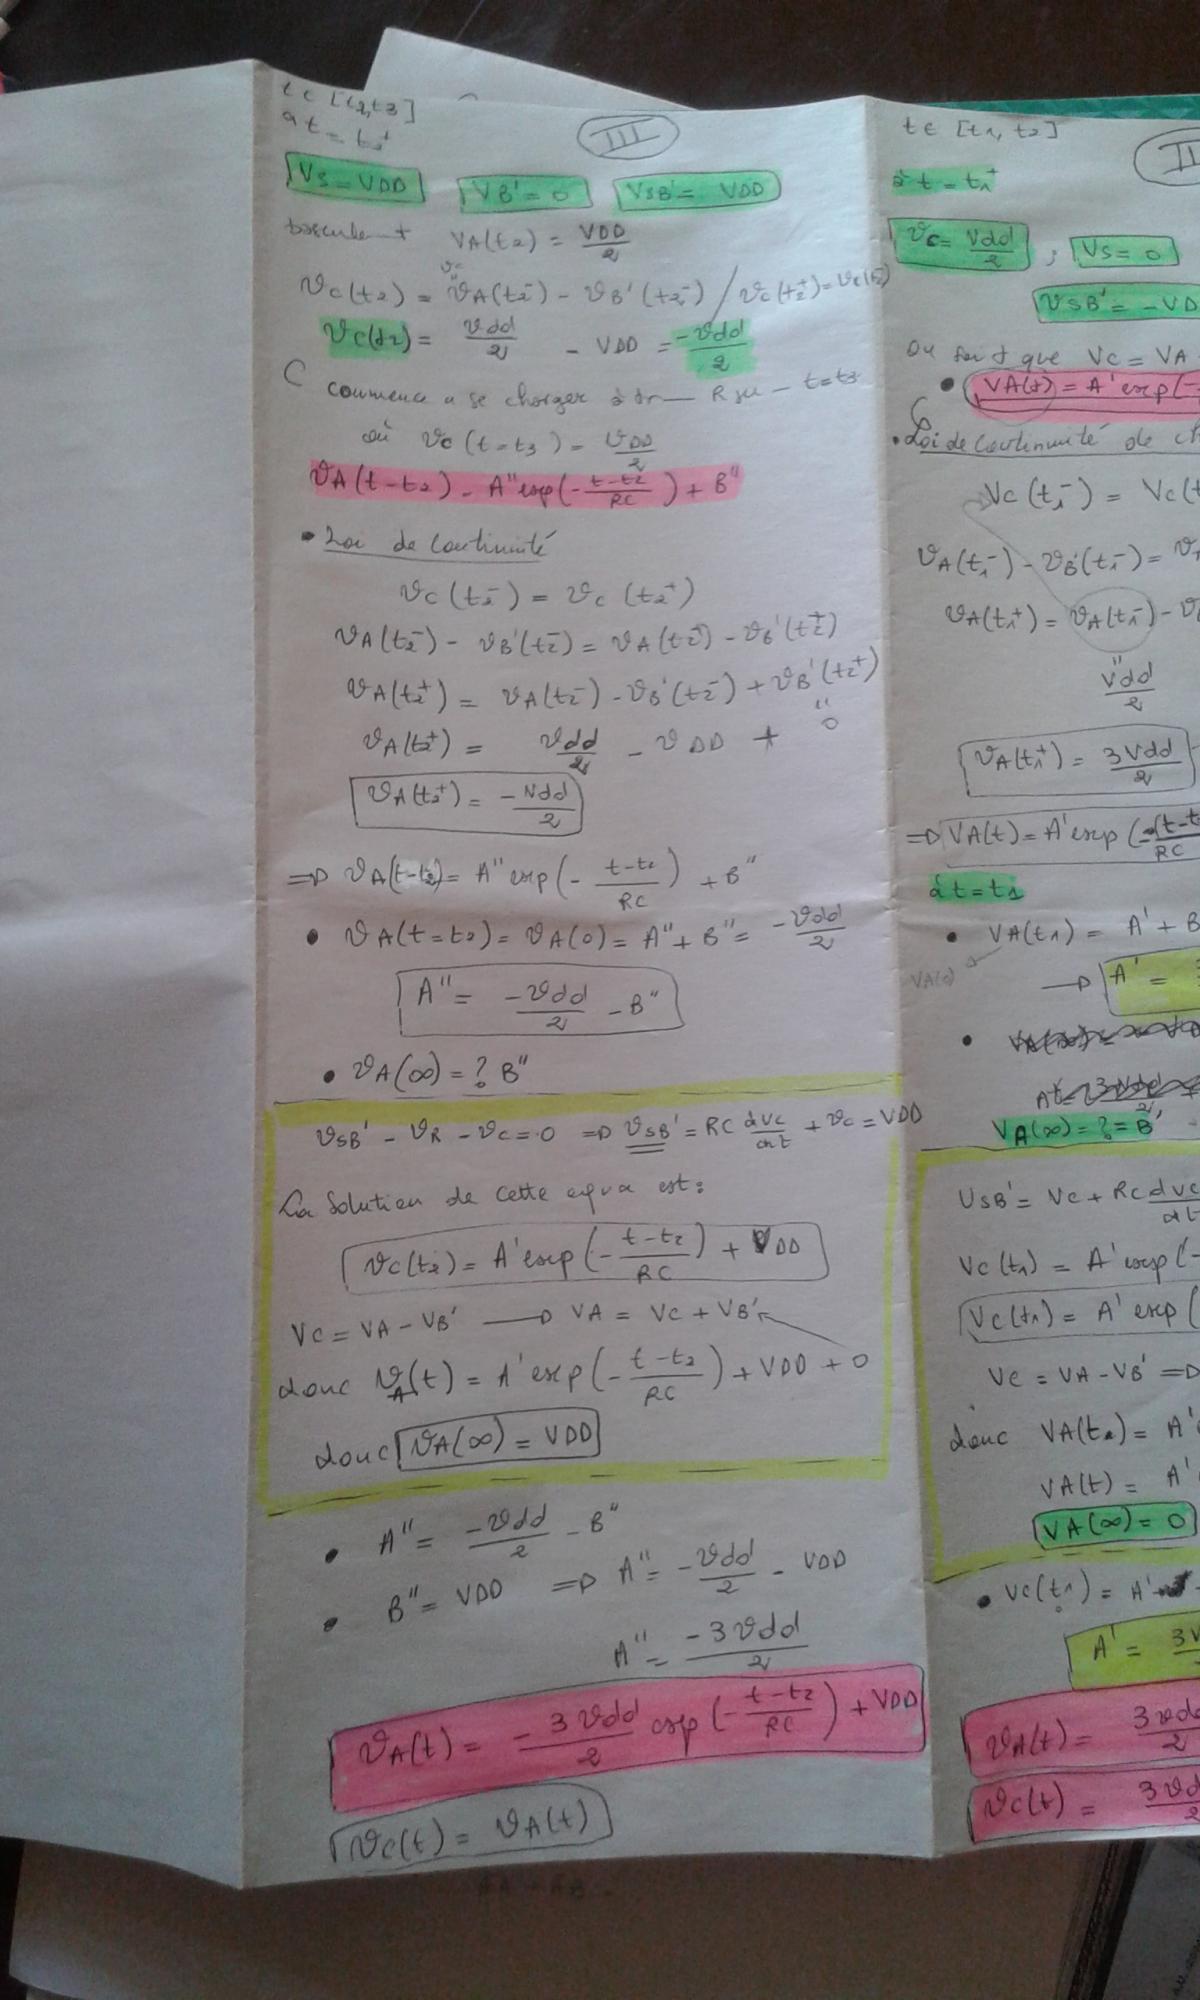 t ∈ [t2, t3]
à t = t2⁺
III
VS = VDD VB' = 0 VSB' = VDD
basculent VA(t2) = VDD/2
vc(t2) = vA(t2⁻) - vB'(t2⁻) / vc(t2⁺) = vc(t2⁻)
vc(t2) = vdd/2 - VDD = -vdd/2
C commence a se charger à tr R jsu t=t3
où vc(t=t3) = VDD/2
vA(t-t2) = A'' exp(-(t-t2)/RC) + B''
• Loi de continuité
vc(t2⁻) = vc(t2⁺)
vA(t2⁻) - vB'(t2⁻) = vA(t2⁺) - vB'(t2⁺)
vA(t2⁺) = vA(t2⁻) - vB'(t2⁻) + vB'(t2⁺)
" 0
vA(t2⁺) = vdd/2 - vDD +
vA(t2⁺) = -vdd/2
=> vA(t-t2) = A'' exp(-(t-t2)/RC) + B''
• vA(t=t2) = vA(0) = A'' + B'' = -vdd/2
A'' = -vdd/2 - B''
• vA(∞) = ? B''
vSB' - vR - vc = 0 => vSB' = RC dvc/dt + vc = VDD
La solution de cette equa est:
vc(t2) = A' exp(-(t-t2)/RC) + VDD
Vc = VA - VB' → VA = Vc + VB'
donc vA(t) = A' exp(-(t-t2)/RC) + VDD + 0
donc vA(∞) = VDD
• A'' = -vdd/2 - B''
• B'' = VDD => A'' = -vdd/2 - VDD
A'' = -3vdd/2
vA(t) = -3vdd/2 exp(-(t-t2)/RC) + VDD
vc(t) = vA(t)
t ∈ [t1, t2]
II
à t = t1⁺
vc = Vdd/2 ; VS = 0
vSB' = -VD
Ou fait que Vc = VA
• VA(t) = A' exp(-
• Loi de continuité de ch
Vc(t1⁻) = Vc(t
vA(t1⁻) - vB'(t1⁻) = v
vA(t1⁺) = vA(t1⁻) - v
" Vdd/2
vA(t1⁺) = 3Vdd/2
=> VA(t) = A' exp(-(t-t /RC
à t = t1
• VA(t1) = A' + B
VA(0)
→ A' =
VA(∞) = ? = B'
USB' = Vc + RC dvc/dt
Vc(t1) = A' exp(-
Vc(t1) = A' exp(
Vc = VA - VB' =>
donc VA(t2) = A'
VA(t) = A'
VA(∞) = 0
• Vc(t1) = A'
A' = 3V
vA(t) = 3vdd/2
vc(t) = 3vd/2